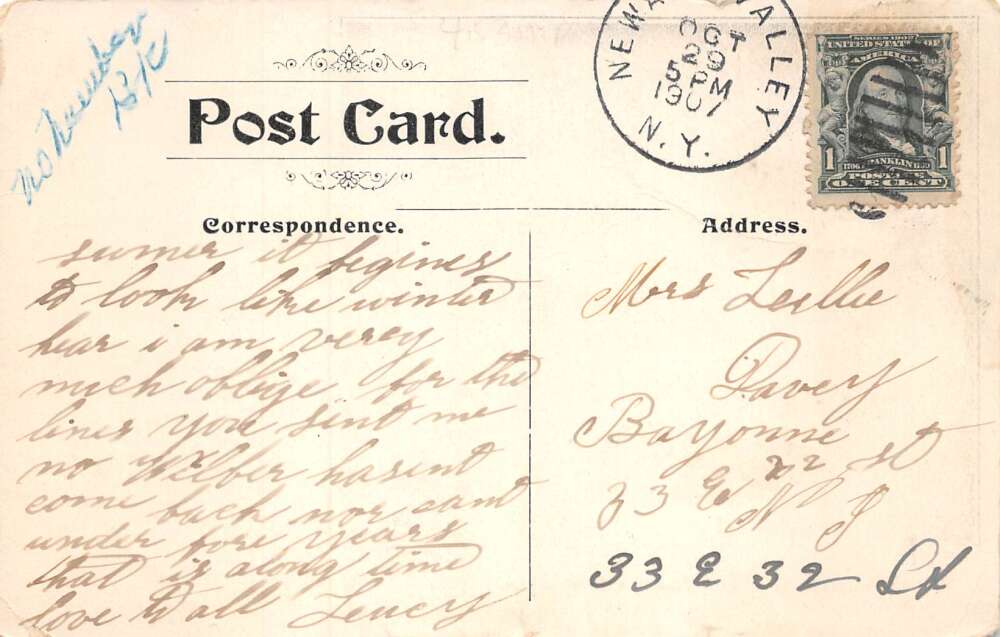 no Number
Post Card.
NEWARK VALLEY
OCT
29
5 PM
1907
N.Y.
SERIES 1902
UNITED STATES OF
AMERICA
1 1706 FRANKLIN 1790 1
POSTAGE
ONE CENT
Correspondence.
sumer it begines
to look like winter
hear i am verey
much oblige for the
lines you sent me
no Wilber hasent
come back nor cant
under fore years
that is along time
love to all Lucy
Address.
Mrs Leslie
Davey
Bayonne
33 E 22 st
N J
33 E 32